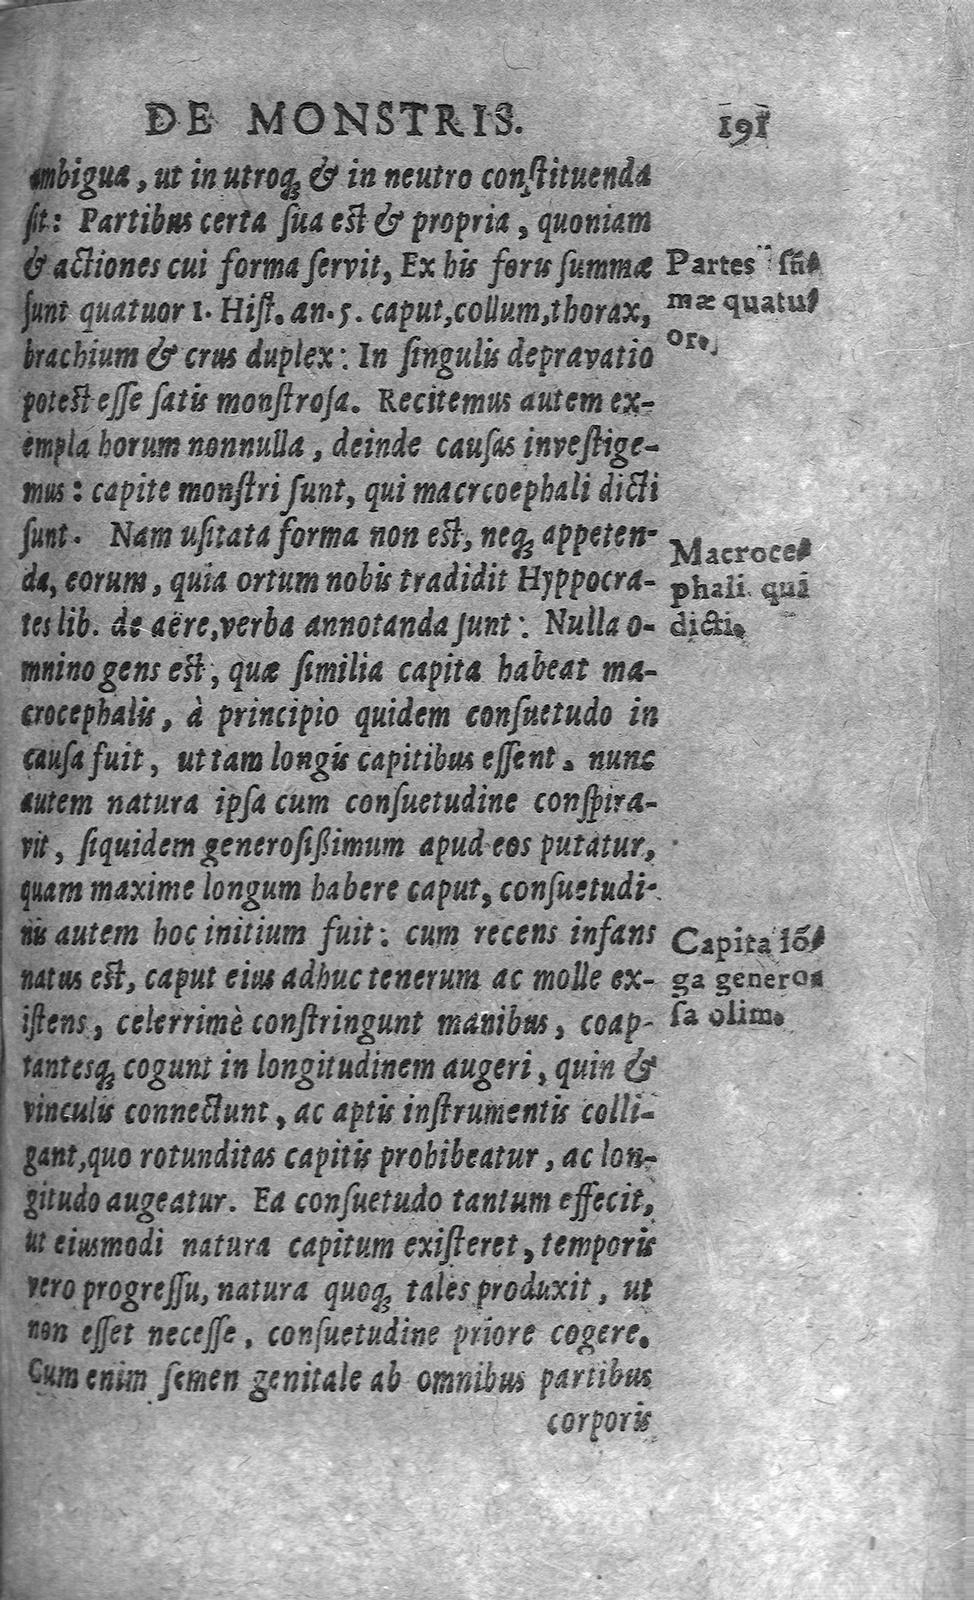 DE MONSTRIS.
191
ambiguæ, ut in utroq; & in neutro constituenda
sit: Partibus certa sua est & propria, quoniam
& actiones cui forma servit, Ex his foris summæ
sunt quatuor 1. Hist. an. 5. caput, collum, thorax,
brachium & crus duplex: In singulis depravatio
potest esse satis monstrosa. Recitemus autem ex-
empla horum nonnulla, deinde causas investige-
mus: capite monstri sunt, qui macrcoephali dicti
sunt. Nam usitata forma non est, neq; appeten-
da, eorum, quia ortum nobis tradidit Hyppocra-
tes lib. de aëre, verba annotanda sunt: Nulla o-
mnino gens est, quæ similia capita habeat ma-
crocephalis, à principio quidem consuetudo in
causa fuit, ut tam longis capitibus essent. nunc
autem natura ipsa cum consuetudine conspira-
vit, siquidem generosißimum apud eos putatur,
quam maxime longum habere caput, consuetudi-
nis autem hoc initium fuit: cum recens infans
natus est, caput eius adhuc tenerum ac molle ex-
istens, celerrimè constringunt manibus, coap-
tantesq; cogunt in longitudinem augeri, quin &
vinculis connectunt, ac aptis instrumentis colli-
gant, quo rotunditas capitis prohibeatur, ac lon-
gitudo augeatur. Ea consuetudo tantum effecit,
ut eiusmodi natura capitum existeret, temporis
vero progressu, natura quoq; tales produxit, ut
non esset necesse, consuetudine priore cogere.
Cum enim semen genitale ab omnibus partibus
corporis
Partes sũ-
mæ quatu-
or.
Macroce-
phali qui
dicti.
Capita lõ-
ga genero-
sa olim.